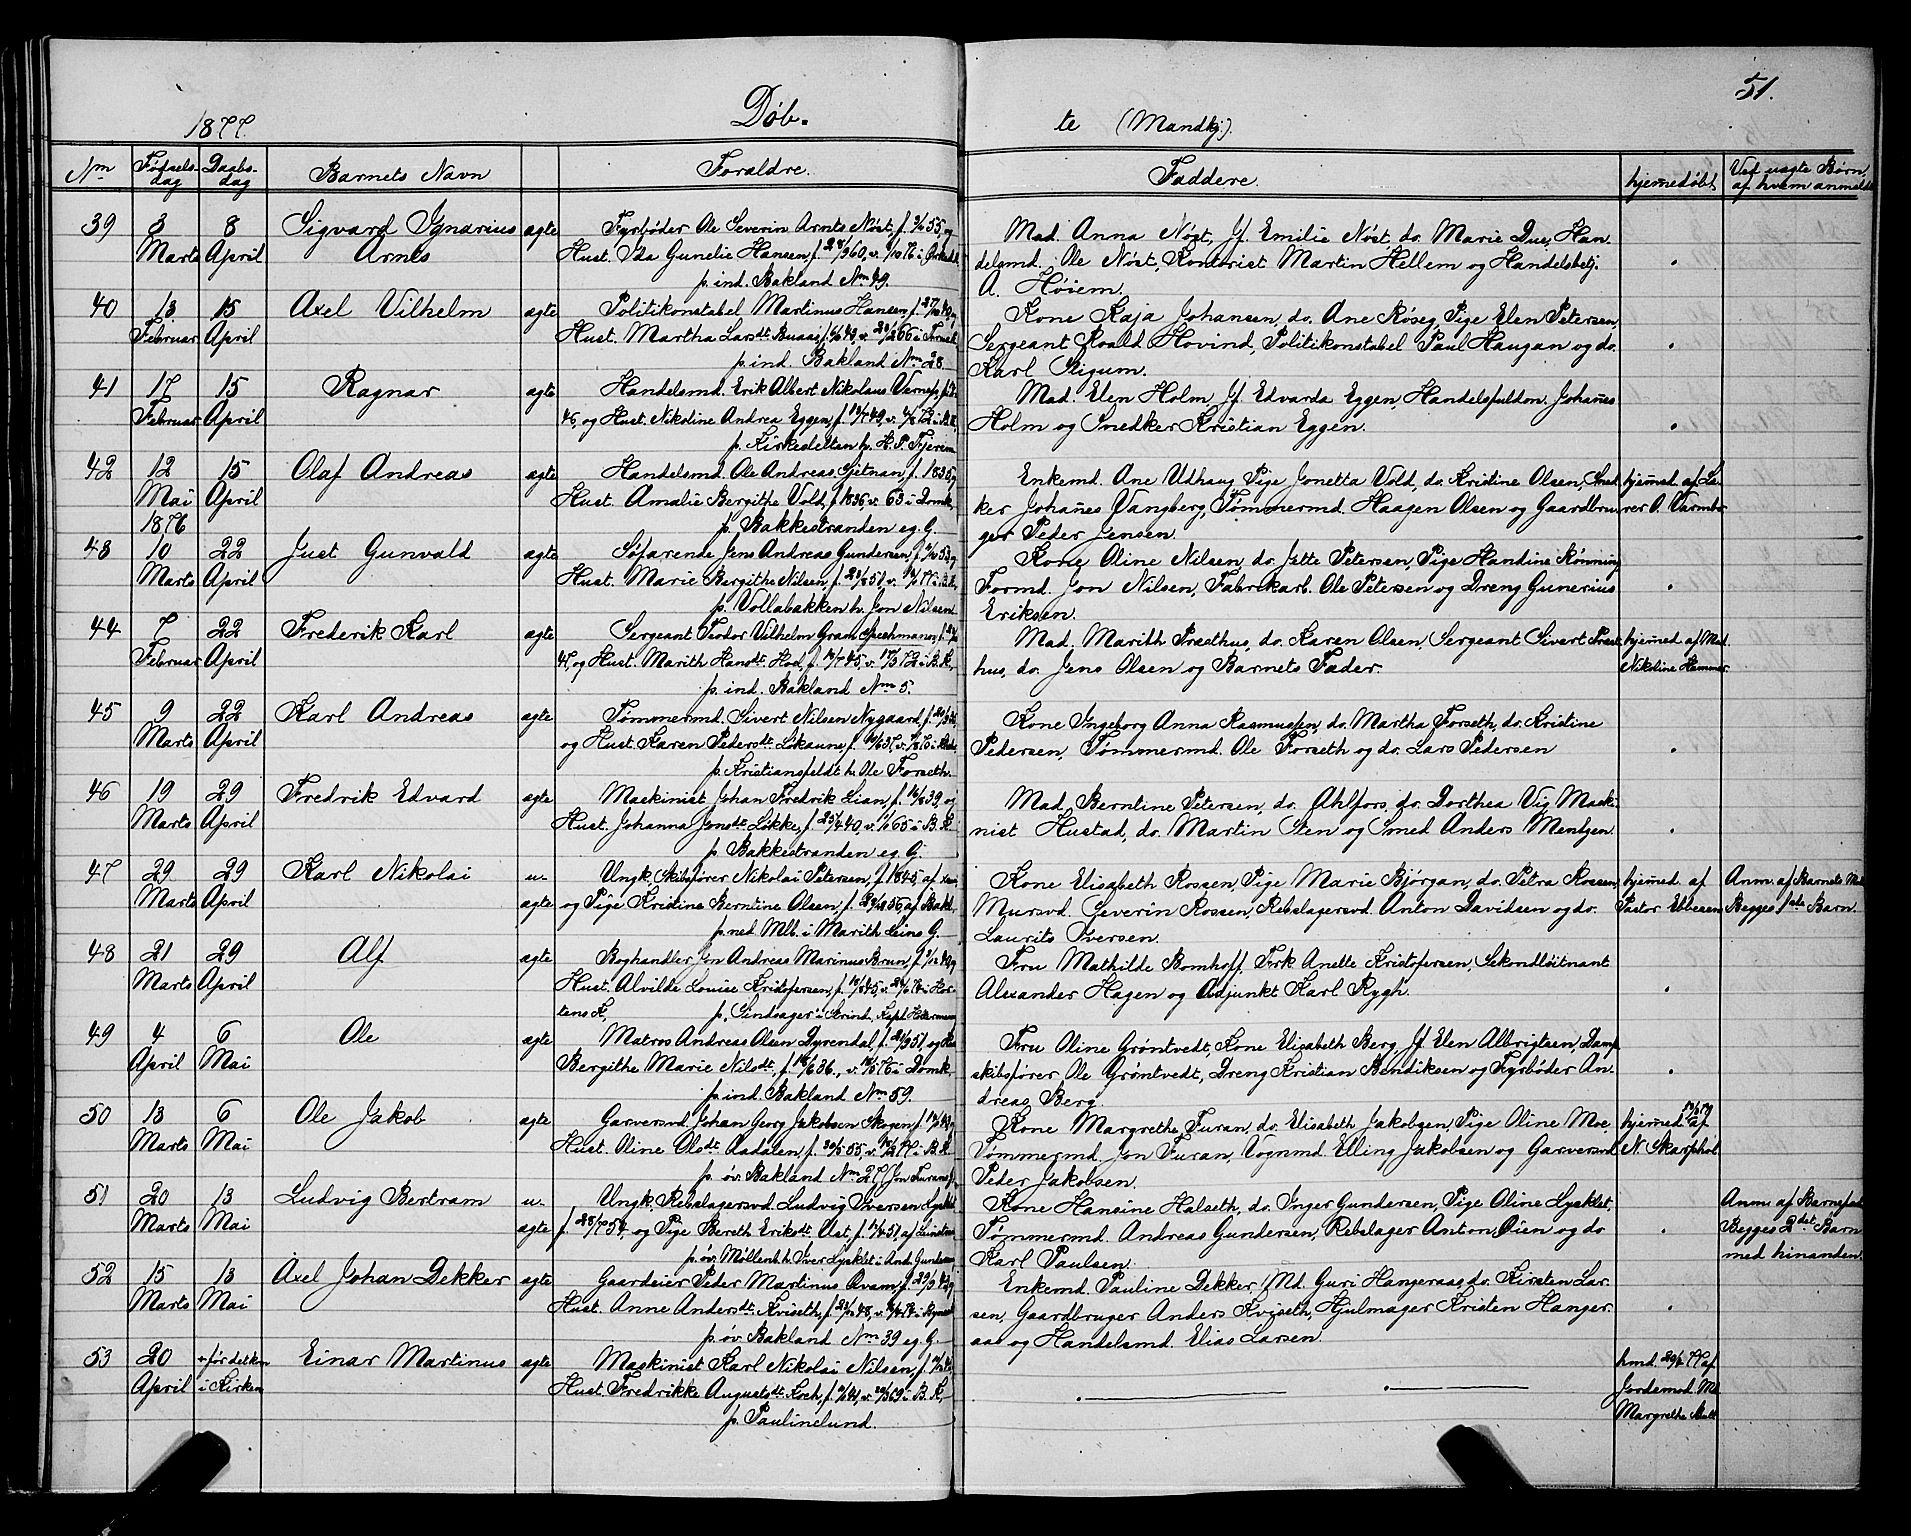 1877.
Døb-
te (Mandkj).
51.
Nm Fødsels-dag Daabs-dag Barnets Navn Foraldre. Faddere. hjemmedøbt Ved uagte Børn, af hvem anmeldt
39 3 Marts 8 April Sigvard Ignarius Arnts agte
Fyrbøder Ole Severin Arnts Nøst, f. 55, og
Hust. Ida Gunelie Hansen,
p. ind. Bakland Nm 49.
Mad. Anna Nøst, Jf. Emilie Nøst, do. Marie Due, Han-
delsmd. Ole Nøst, Kontorist Martin Hellem og Handelsbetj.
A. Høiem.
40 13 Februar 15 April Axel Vilhelm agte
Politikonstabel Martinus Hansen,
Hust. Martha Larsdt. Buaas,
p. ind. Bakland Nm 28.
Kone Kaja Johansen, do. Ane Røseg, Pige Elen Petersen,
Sergeant Roald Hovind, Politikonstabel Paul Haugan og do.
Karl Stigum.
41 17 Februar 15 April Ragnar agte
Handelsmd. Erik Albert Nikolaus
46, og Hust. Nikoline Andrea Eggen,
p. Kirkesletten h. H. P. Fjerem
Mad. Elen Holm, Jf. Edvarda Eggen, Handelsfuldm. Johañes
Holm og Snedker Kristian Eggen.
42 12 Mai 1876 15 April Olaf Andreas agte
Handelsmd. Ole Andreas Sjetnan, f. 1835, og
Hust. Amalie Bergithe Vold, f. 1836, v. 63 i Domk.
p. Bakkestranden eg. G.
Enkemd. Ane Udhaug, Pige Jonetta Vold, do. Kristine Olsen, Sned-
ker Johañes Vangberg, Tømmermd. Haagen Olsen og Gaardbru-
ger Peder Jensen.
hjemmed. af Læ-
rer O. Varmbo
43 10 Marts 22 April Just Gunvald agte
Søfarende Jens Andreas Gundersen,
Hust. Marie Bergithe Nilsen,
p. Vollabakken h. Jon Nilsen
Kone Oline Nilsen, do. Jette Petersen, Pige Handine Rønning,
Formd. Jon Nilsen, Fabrikarb. Ole Petersen og Dreng Gunerius
Eriksen.
44 7 Februar 22 April Frederik Karl agte
Sergeant Teodor Vilhelm Gram
47, og Hust. Marith Hansdt. Hof, i B. K.,
p. ind. Bakland Nm 5.
Mad. Marith Præsthus, do. Karen Olsen, Sergeant Sivert Præst-
hus, do. Jens Olsen og Barnets Fader.
hjemmed. af Mad.
Nikoline Hammer
45 9 Marts 22 April Karl Andreas agte
Tømmermd. Sivert Nilsen Nygaard,
og Hust. Karen Pedersdt. Løkaune,
p. Kristiansfeldt h. Ole Forseth.
Kone Ingeborg Anna Rasmussen, do. Martha Forseth, do. Kristine
Pedersen, Tømmermd. Ole Forseth og do. Lars Pedersen
46 19 Marts 29 April Fredrik Edvard agte
Maskinist Johan Fredrik Lian, og
Hust. Johanna Jonsdt. Løkke,
p. Bakkestranden eg. G.
Mad. Berntine Petersen, do. Ahlfors, do. Dorthea Vig, Maski-
nist Hustad, do. Martin Sten og Smed Anders Mentzen.
47 29 Marts 29 April Karl Nikolai u- agte
Ungk. Skibsfører Nikolai Petersen, f. 1845, af
og Pige Kristine Berntine Olsen, af Bakl.,
p. ned. Mlb. i Marith Leins G.
Kone Elisabeth Rossen, Pige Marie Bjørgan, do. Petra Rossen,
Mursvd. Severin Rossen, Rebslagersvd. Anton Davidsen og do.
Laurits Iversen.
hjemmed. af
Pastor Ebbesen
Anm. af Barnets Mod.
Begges 1ste Barn.
48 21 Marts 29 April Alf agte
Boghandler Jon Andreas Marinus Brun,
Hust. Alvilde Louise Kristofersen, i Hor-
tens K, p. Sindsager i Strind,
Fru Mathilde Bomhoff, Frk Anette Kristofersen, Sekondløitnant
Alexander Hagen og Adjunkt Karl Rygh.
49 4 April 6 Mai Ole agte
Matros Andreas Olsen Dyrendal, og Hu.
Bergithe Marie Nilsdt., i Domk.
p. ind. Bakland Nm 59.
Fru Oline Grøntvedt, Kone Elisabeth Berg, Jf. Elen Albrigtsen, Damp-
skibsfører Ole Grøntvedt, Dreng Kristian Bendiksen og Fyrbøder An-
dreas Berg.
50 13 Marts 6 Mai Ole Jakob agte
Garversvd. Johan Georg Jakobsen Skogen,
Hust. Oline Olsdt. Aadalen, i B. K.
p. øv. Bakland Nm 27, Jon Furans
Kone Margrethe Furan, do. Elisabeth Jakobsen, Pige Oline Moe,
Tømmermd. Jon Furan, Vognmd. Elling Jakobsen og Garversvd.
Peder Jakobsen.
hjemmed. af
N. Skarphol
51 20 Marts 13 Mai Ludvig Bertram u- agte
Ungk. Rebslagersvd. Ludvig Iversen Lysklet
f. 28/7 54, og Pige Bereth Eriksdt. Ust,
p. øv. Møllenb. h. Iver Lysklet i And. Gundersens
Kone Hansine Halseth, do. Inger Gundersen, Pige Oline Lysklet,
Tømmermd. Andreas Gundersen, Rebslager Anton Øien og do
Karl Paulsen.
Anm. af Barnefad.
Begges 2det Barn
med hinanden.
52 15 Marts 13 Mai Axel Johan Dekker agte
Gaardeier Peder Martinus Qvam,
Hust. Anne Andersdt. Kviseth,
p. øv. Bakland Nm 39 eg. G.
Enkemd. Pauline Dekker, Md. Guri Hangeraas, do. Kirsten Lar-
sen, Gaardbruger Anders Kviseth, Hjulmager Kristen Hanger-
aas og Handelsmd. Elias Larsen.
53 20 April + før det kom i Kirken Einar Martinus agte
Maskinist Karl Nikolai Nilsen,
Hust. Fredrikke Augustsdt. Koch, i B. K.,
p. Paulinelund.
hmd. af
Jordemod. Md
Margrethe